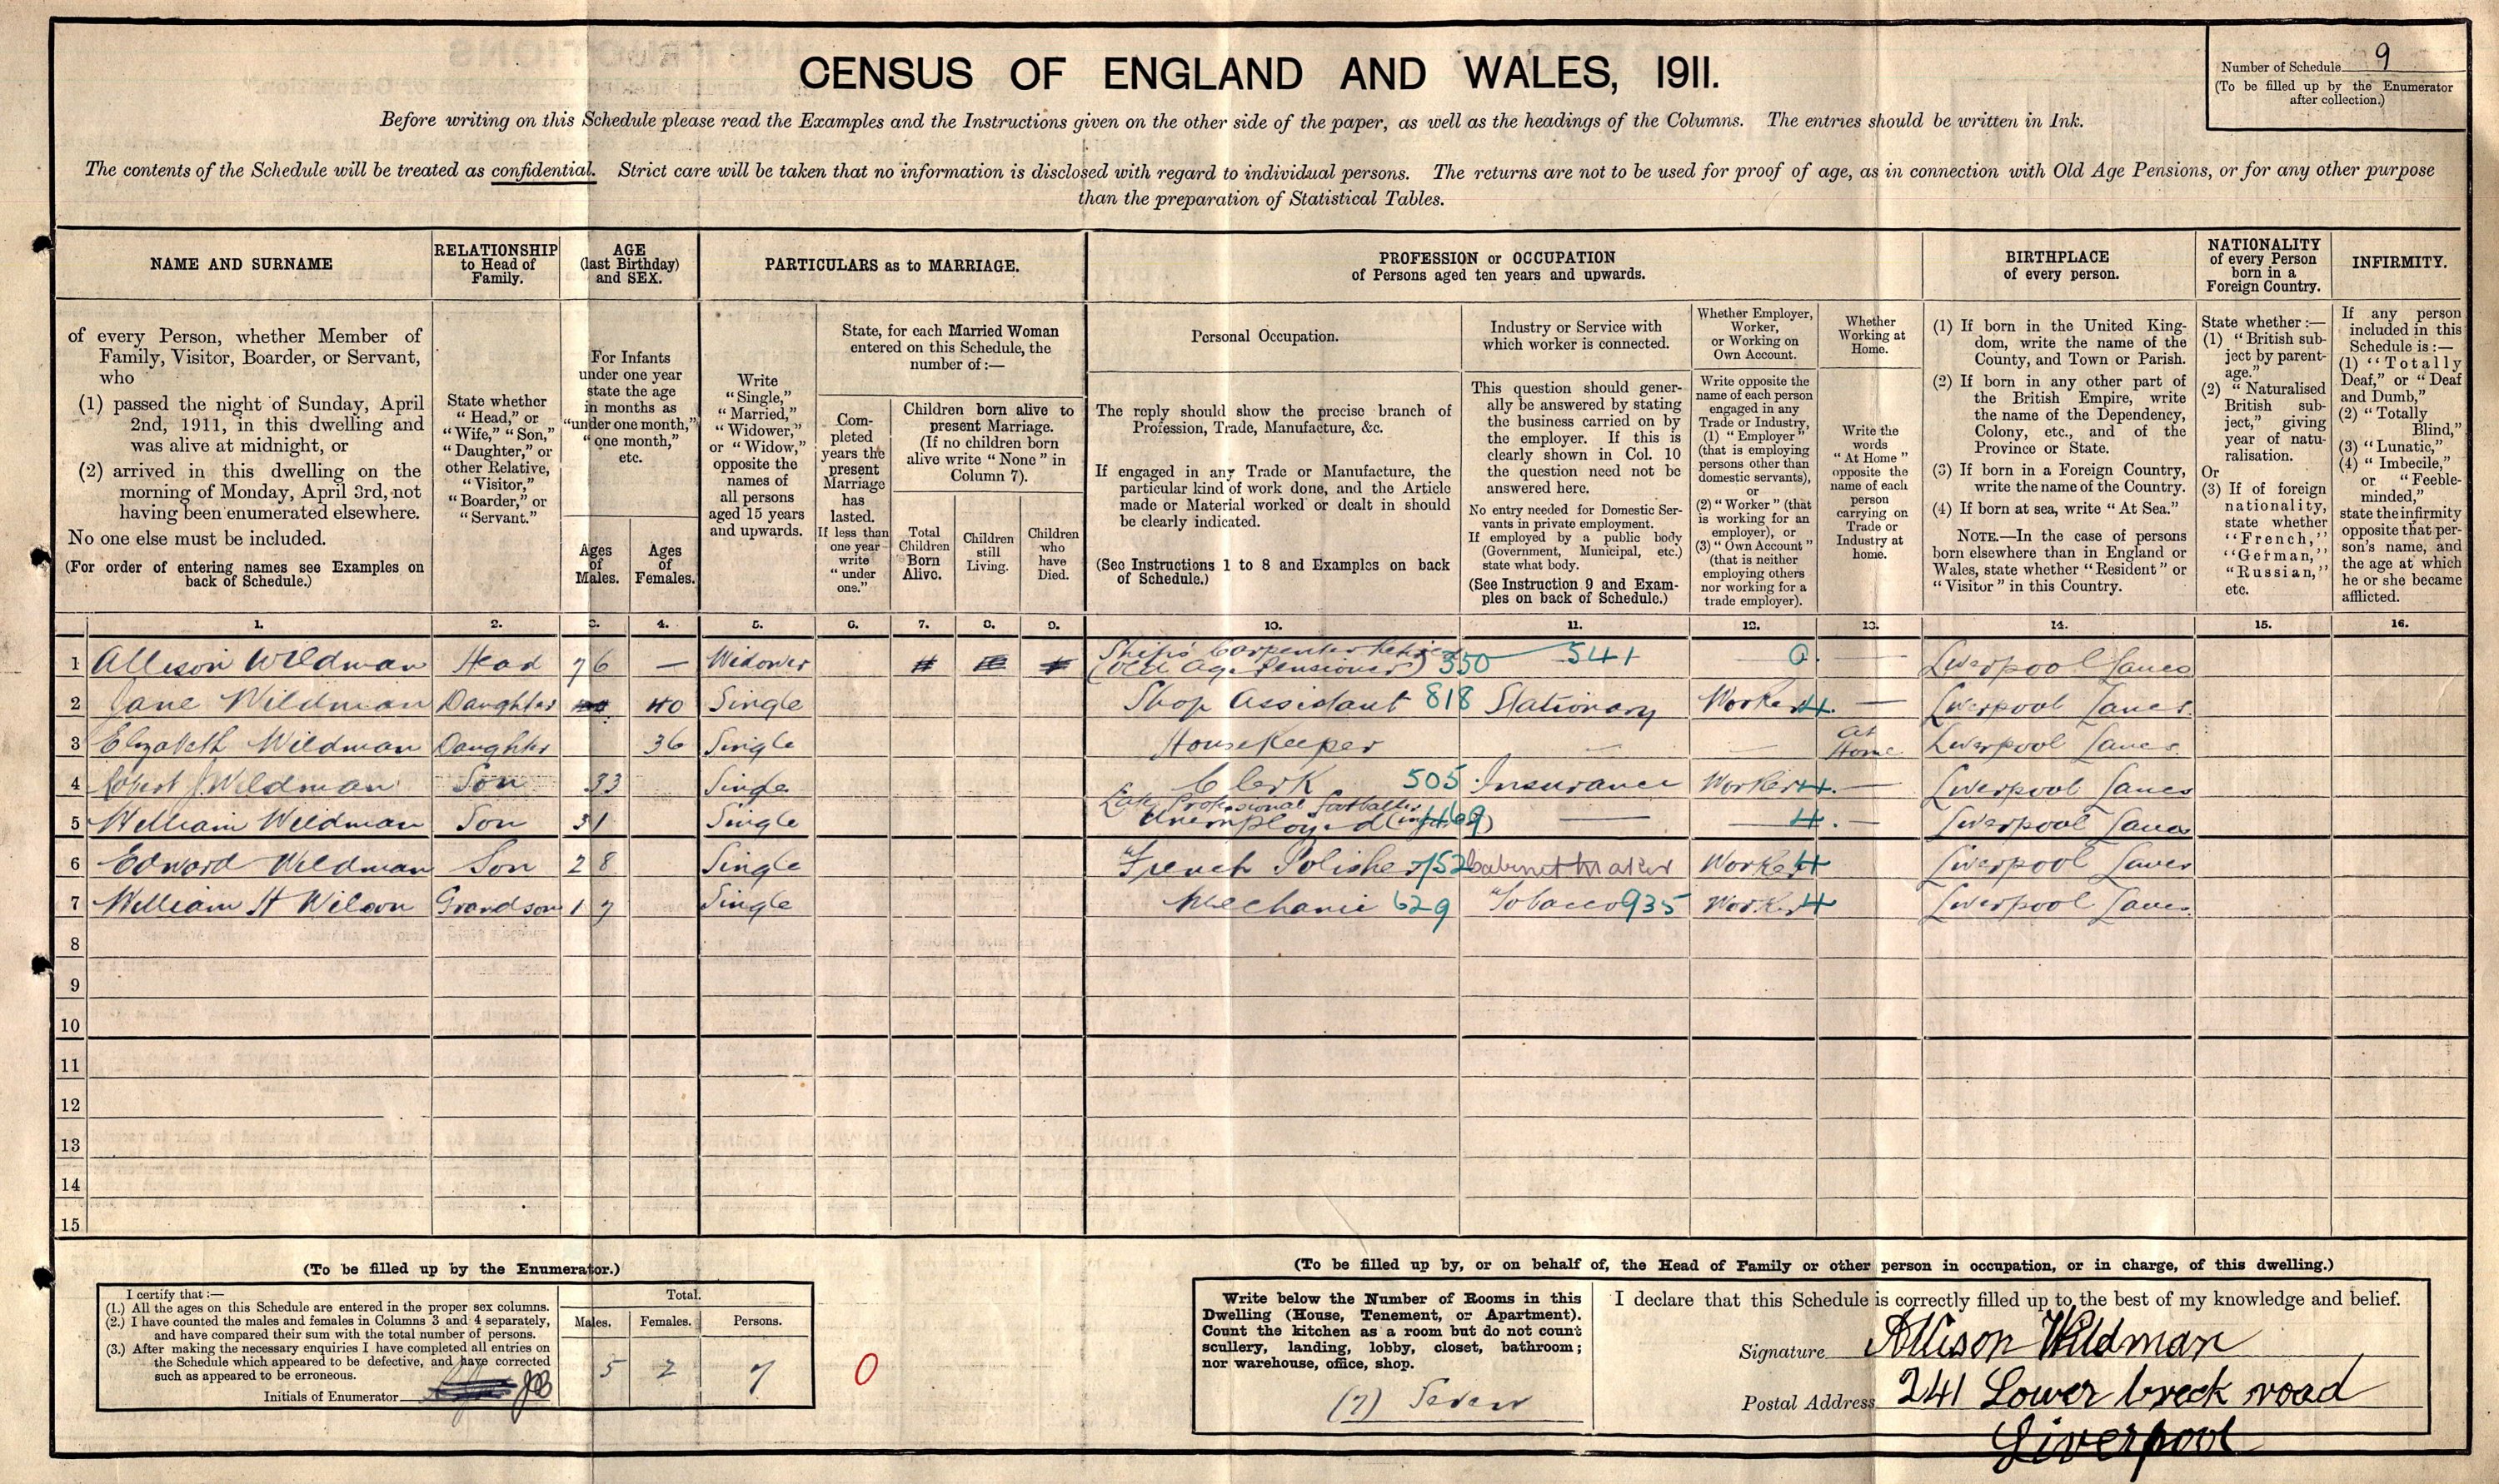 CENSUS OF ENGLAND AND WALES, 1911.
Number of Schedule 9
(To be filled up by the Enumerator
after collection.)
Before writing on this Schedule please read the Examples and the Instructions given on the other side of the paper, as well as the headings of the Columns. The entries should be written in Ink.
The contents of the Schedule will be treated as confidential. Strict care will be taken that no information is disclosed with regard to individual persons. The returns are not to be used for proof of age, as in connection with Old Age Pensions, or for any other purpose
than the preparation of Statistical Tables.
NAME AND SURNAME
of every Person, whether Member of
Family, Visitor, Boarder, or Servant,
who
(1) passed the night of Sunday, April
2nd, 1911, in this dwelling and
was alive at midnight, or
(2) arrived in this dwelling on the
morning of Monday, April 3rd, not
having been enumerated elsewhere.
No one else must be included.
(For order of entering names see Examples on
back of Schedule.)
RELATIONSHIP
to Head of
Family.
State whether
"Head," or
"Wife," "Son,"
"Daughter," or
other Relative,
"Visitor,"
"Boarder," or
"Servant."
AGE
(last Birthday)
and SEX.
For Infants
under one year
state the age
in months as
"under one month,"
"one month,"
etc.
Ages
of
Males.
Ages
of
Females.
PARTICULARS as to MARRIAGE.
Write
"Single,"
"Married,"
"Widower,"
or "Widow,"
opposite the
names of
all persons
aged 15 years
and upwards.
State, for each Married Woman
entered on this Schedule, the
number of :—
Com-
pleted
years the
present
Marriage
has
lasted.
If less than
one year
write
"under
one."
Children born alive to
present Marriage.
(If no children born
alive write "None" in
Column 7).
Total
Children
Born
Alive.
Children
still
Living.
Children
who
have
Died.
PROFESSION or OCCUPATION
of Persons aged ten years and upwards.
Personal Occupation.
The reply should show the precise branch of
Profession, Trade, Manufacture, &c.
If engaged in any Trade or Manufacture, the
particular kind of work done, and the Article
made or Material worked or dealt in should
be clearly indicated.
(See Instructions 1 to 8 and Examples on back
of Schedule.)
Industry or Service with
which worker is connected.
This question should gener-
ally be answered by stating
the business carried on by
the employer. If this is
clearly shown in Col. 10
the question need not be
answered here.
No entry needed for Domestic Ser-
vants in private employment.
If employed by a public body
(Government, Municipal, etc.)
state what body.
(See Instruction 9 and Exam-
ples on back of Schedule.)
Whether Employer,
Worker,
or Working on
Own Account.
Write opposite the
name of each person
engaged in any
Trade or Industry,
(1) "Employer"
(that is employing
persons other than
domestic servants),
or
(2) "Worker" (that
is working for an
employer), or
(3) "Own Account"
(that is neither
employing others
nor working for a
trade employer).
Whether
Working at
Home.
Write the
words
"At Home"
opposite the
name of each
person
carrying on
Trade or
Industry at
home.
BIRTHPLACE
of every person.
(1) If born in the United King-
dom, write the name of the
County, and Town or Parish.
(2) If born in any other part of
the British Empire, write
the name of the Dependency,
Colony, etc., and of the
Province or State.
(3) If born in a Foreign Country,
write the name of the Country.
(4) If born at sea, write "At Sea."
NOTE.—In the case of persons
born elsewhere than in England or
Wales, state whether "Resident" or
"Visitor" in this Country.
NATIONALITY
of every Person
born in a
Foreign Country.
State whether :—
(1) "British sub-
ject by parent-
age."
(2) "Naturalised
British sub-
ject," giving
year of natu-
ralisation.
Or
(3) If of foreign
nationality,
state whether
"French,"
"German,"
"Russian,"
etc.
INFIRMITY.
If any person
included in this
Schedule is :—
(1) "Totally
Deaf," or "Deaf
and Dumb,"
(2) "Totally
Blind,"
(3) "Lunatic,"
(4) "Imbecile,"
or "Feeble-
minded,"
state the infirmity
opposite that per-
son's name, and
the age at which
he or she became
afflicted.
1. 2. 3. 4. 5. 6. 7. 8. 9. 10. 11. 12. 13. 14. 15. 16.
1 Allison Wildman Head 76 — Widower Ship's Carpenter Retired (Old Age Pensioner) 550 541 0. — Liverpool Lancs
2 Jane Wildman Daughter 40 Single Shop Assistant 818 Stationary Worker 4. — Liverpool Lancs.
3 Elizabeth Wildman Daughter 36 Single HouseKeeper — — At Home Liverpool Lancs.
4 Robert J Wildman Son 33 Single Clerk 505 Insurance Worker 4. — Liverpool Lancs
5 William Wildman Son 31 Single Late Professional Footballer Unemployed 469 — 4. — Liverpool Lancs
6 Edward Wildman Son 28 Single French Polisher 752 Cabinet Maker Worker 4 Liverpool Lancs
7 William H Wilson Grandson 17 Single Mechanic 629 Tobacco 935 Worker 4 Liverpool Lancs.
8
9
10
11
12
13
14
15
(To be filled up by the Enumerator.)
I certify that :—
(1.) All the ages on this Schedule are entered in the proper sex columns.
(2.) I have counted the males and females in Columns 3 and 4 separately,
and have compared their sum with the total number of persons.
(3.) After making the necessary enquiries I have completed all entries on
the Schedule which appeared to be defective, and have corrected
such as appeared to be erroneous.
Initials of Enumerator JB
Total.
Males. Females. Persons.
5 2 7
0
(To be filled up by, or on behalf of, the Head of Family or other person in occupation, or in charge, of this dwelling.)
Write below the Number of Rooms in this
Dwelling (House, Tenement, or Apartment).
Count the kitchen as a room but do not count
scullery, landing, lobby, closet, bathroom;
nor warehouse, office, shop.
(7) Seven
I declare that this Schedule is correctly filled up to the best of my knowledge and belief.
Signature Allison Wildman
Postal Address 241 Lower breck road
Liverpool